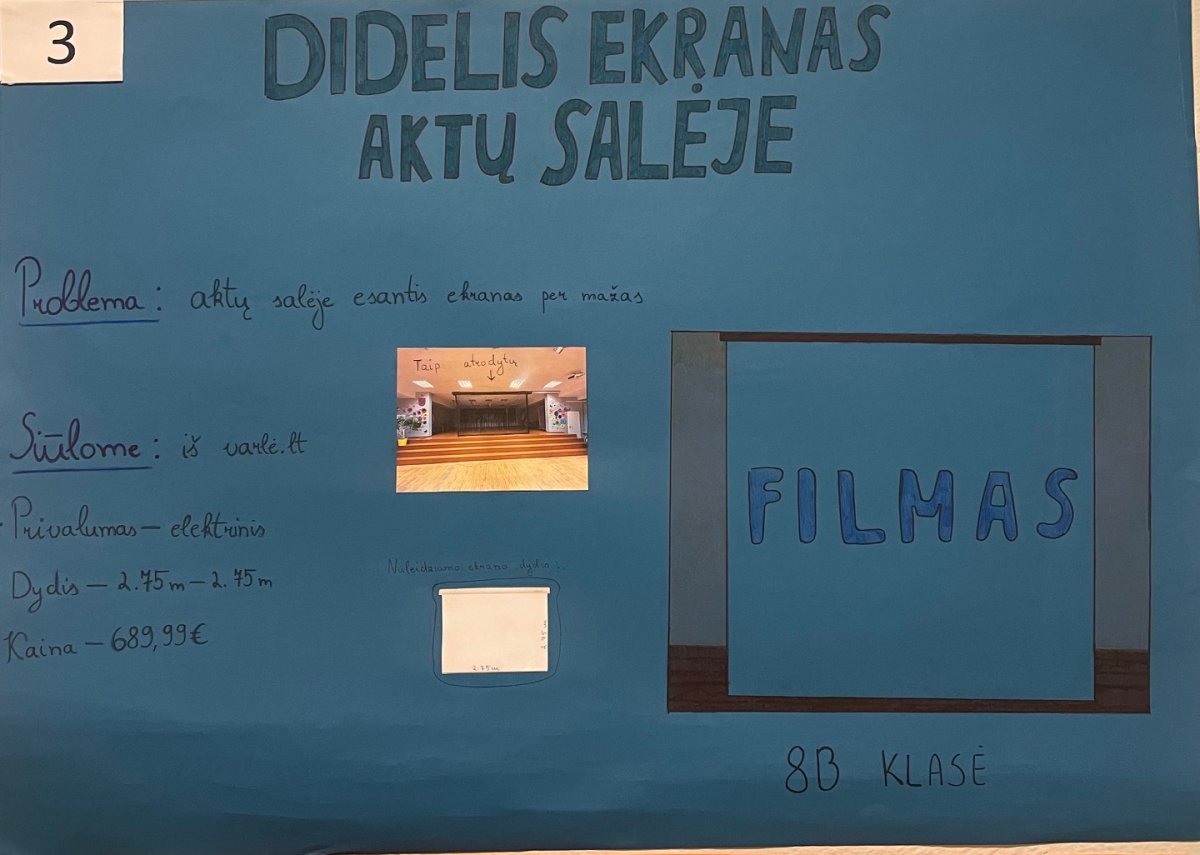 3
DIDELIS EKRANAS
AKTŲ SALĖJE
Problema: aktų salėje esantis ekranas per mažas
Taip atrodytų
Siūlome: iš varlė.lt
Privalumas – elektrinis
Dydis – 2.75m – 2.75m
Kaina – 689,99€
Nuleidžiamo ekrano dydis:
2.75m
2.75m
FILMAS
8B KLASĖ